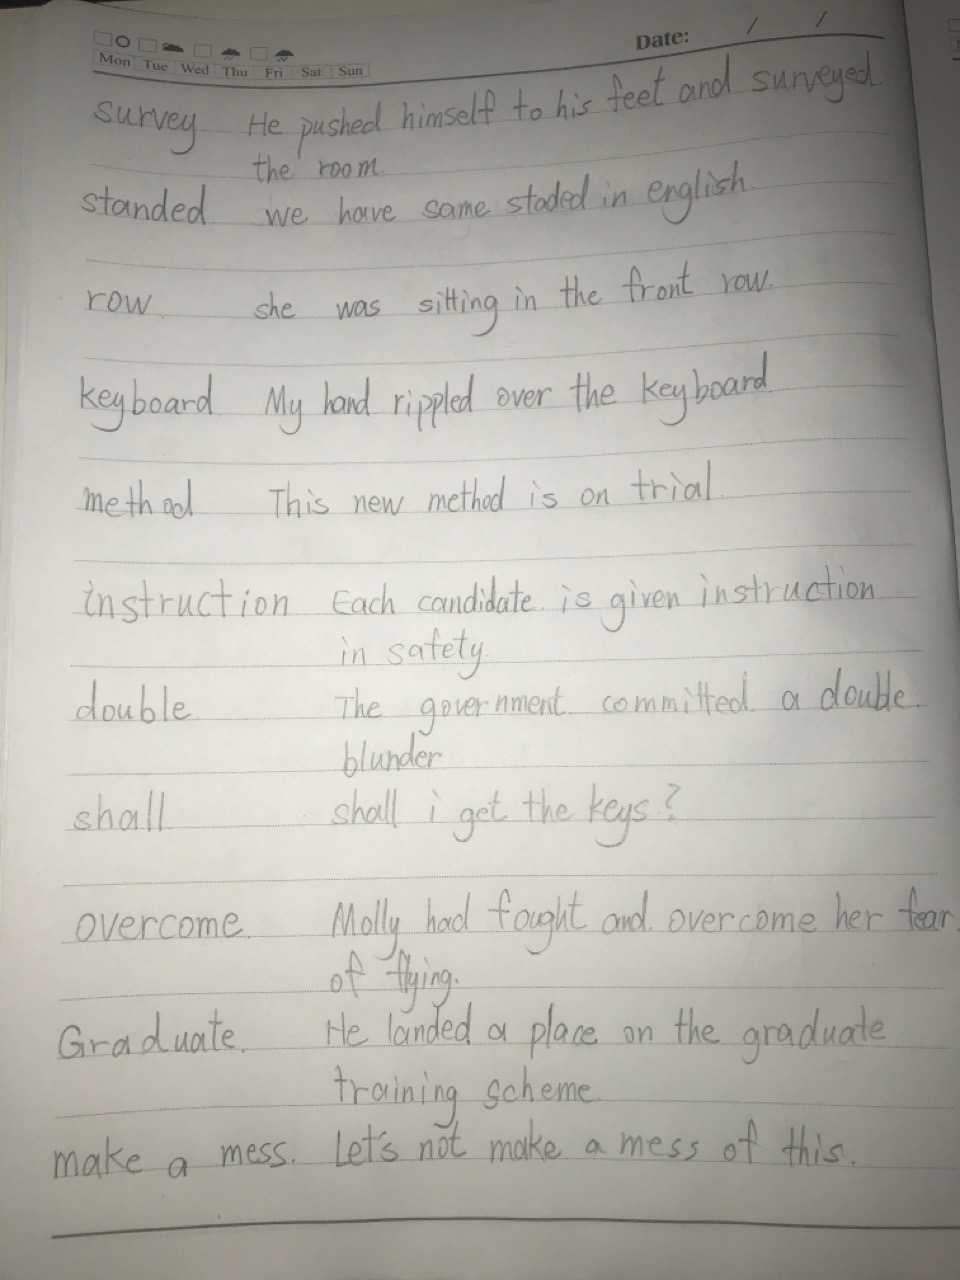 Date: / /
Mon Tue Wed Thu Fri Sat Sun
survey He pushed himself to his feet and surveyed
the room.
standed we have same staded in english.
row. she was sitting in the front row.
keyboard My hand rippled over the keyboard.
method This new method is on trial.
instruction Each candidate is given instruction
in safety.
double The government committed a double
blunder
shall shall i get the keys?
overcome. Molly had fought and overcome her fear
of flying.
Graduate. He landed a place on the graduate
training scheme.
make a mess. Let's not make a mess of this.